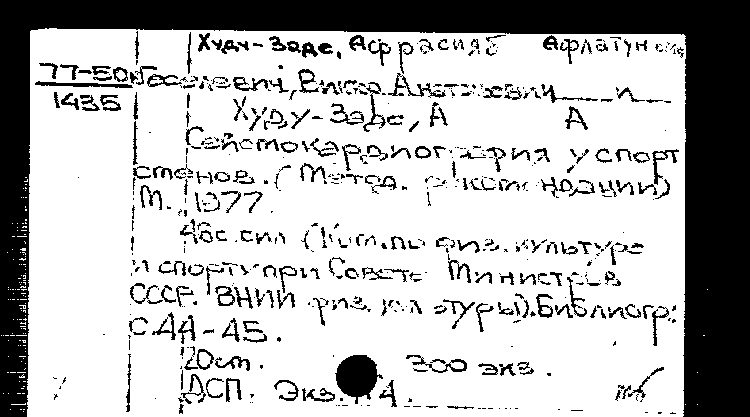 Худу-Заде, Афрасияб Афлатун
77-50
1435
Виктор Анатольевич и
Худу-Заде, А А
Сейсмокардиография у спорт
сменов. (Метод. рекомендации)
М. 1977.
48с. сил (Ком. по физ. культуре
и спорту при Совете Министров
СССР. ВНИИ физ. культуры). Библиогр:
с. 44-45.
20см. 300 экз.
ДСП. Экз. 4.